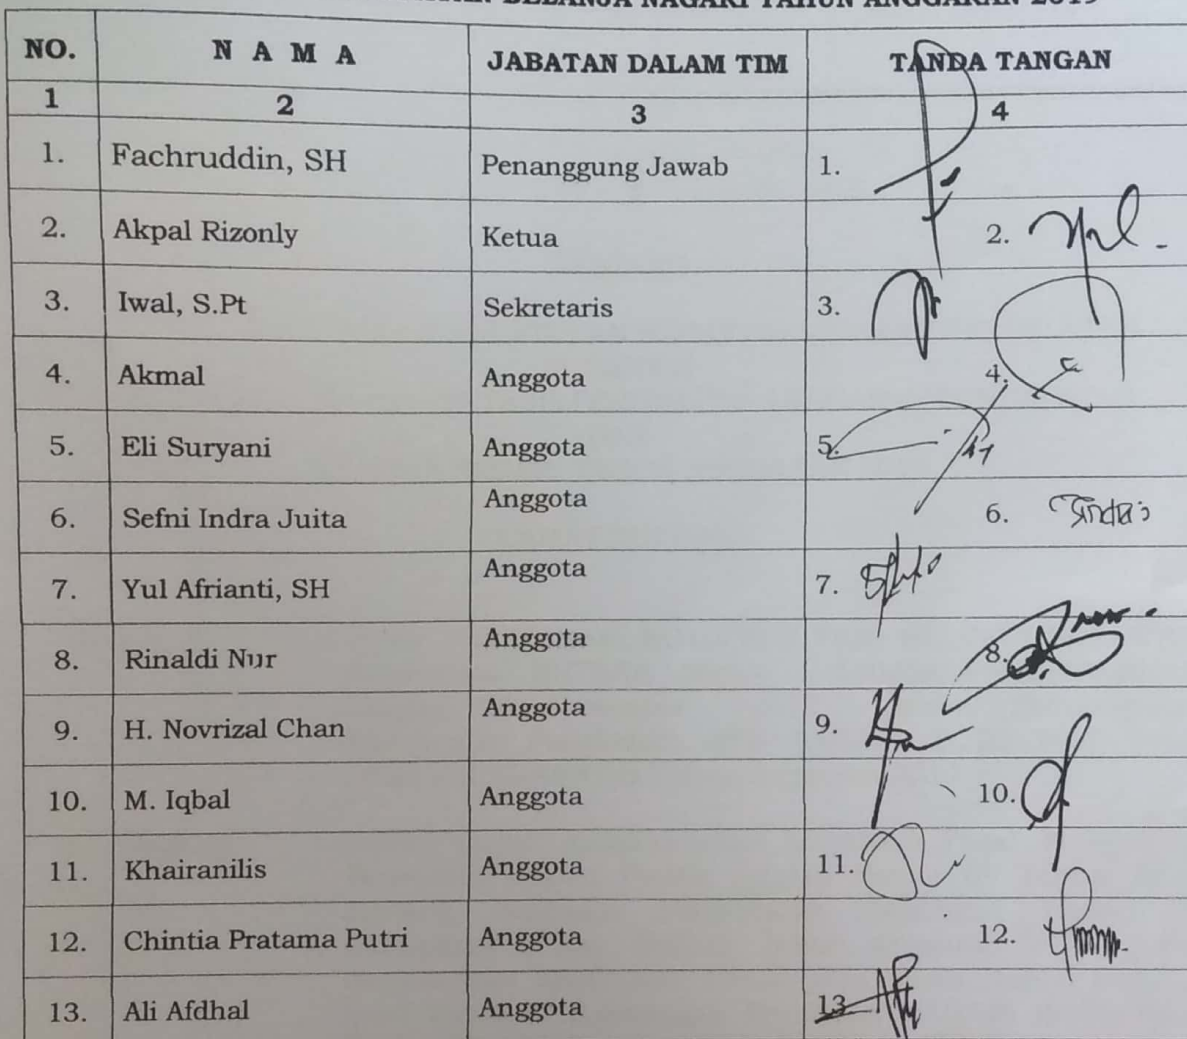 BELANJA NAGARI TAHUN ANGGARAN 2019
NO. N A M A JABATAN DALAM TIM TANDA TANGAN
1 2 3 4
1. Fachruddin, SH Penanggung Jawab 1.
2. Akpal Rizonly Ketua 2.
3. Iwal, S.Pt Sekretaris 3.
4. Akmal Anggota 4.
5. Eli Suryani Anggota 5.
6. Sefni Indra Juita Anggota 6.
7. Yul Afrianti, SH Anggota 7.
8. Rinaldi Nur Anggota 8.
9. H. Novrizal Chan Anggota 9.
10. M. Iqbal Anggota 10.
11. Khairanilis Anggota 11.
12. Chintia Pratama Putri Anggota 12.
13. Ali Afdhal Anggota 13